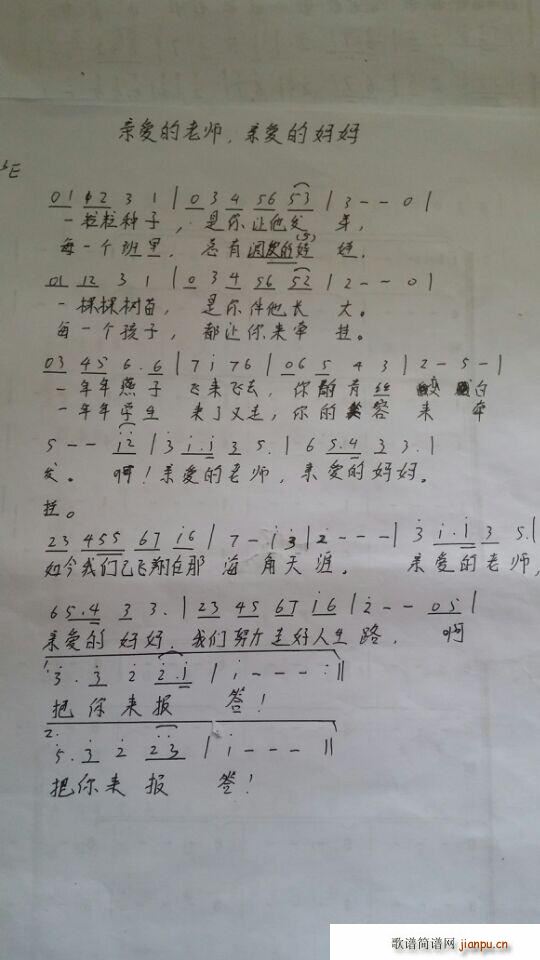 亲爱的老师，亲爱的妈妈
♭E
01 12 3 1 | 0 3 4 56 53 | 3 - - 0 |
一粒粒种子，是你让他发 芽，
每一个班里，总有调皮的娃 娃，
01 12 3 1 | 0 3 4 56 52 | 2 - - 0 |
一棵棵树苗，是你伴他长 大。
每一个孩子，都让你来牵 挂。
03 45 6.6 | 7 i 76 | 06 5 4 3 | 2 - 5 - |
一年年燕子 飞来飞去，你的青丝 白
一年年学生 来了又走，你的笑容 来 牵
5 - - i2 | 3 i.i 3 5. | 6 5.4 3 3. |
发。 啊！亲爱的老师，亲爱的妈妈。
挂。
23 455 67 i6 | 7 - i 3 | 2 - - - | 3 i.i 3 5. |
如今我们已飞翔在那 海角天涯。 亲爱的老师，
65.4 3 3. | 23 45 67 i6 | 2 - - 05 |
亲爱的 妈妈，我们努力走好人生 路， 啊
1. 3. 3 2 2.1 | i - - - :||
把你来报 答！
2. 5. 3 2 23 | i - - - ||
把你来 报 答！
歌谱简谱网 jianpu.cn